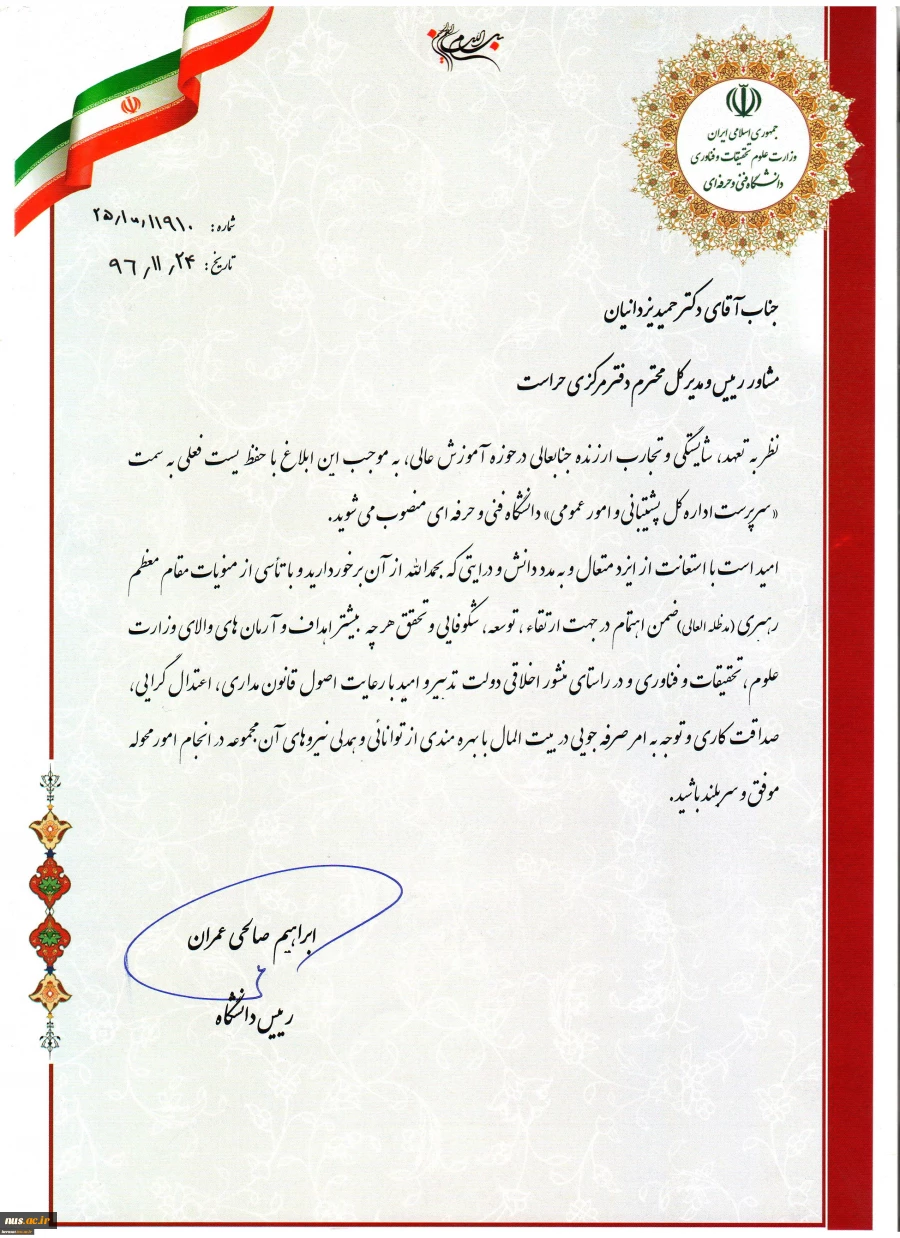 بسم الله الرحمن الرحیم
جمهوری اسلامی ایران
وزارت علوم تحقیقات و فناوری
دانشگاه فنی و حرفه‌ای
شماره:
تاریخ: ۹۶٫۱۱٫۲۴
جناب آقای دکتر حمید یزدانیان
مشاور رییس و مدیر کل محترم دفتر مرکزی حراست
نظر به تعهد، شایستگی و تجارب ارزنده جنابعالی در حوزه آموزش عالی، به موجب این ابلاغ با حفظ پست فعلی به سمت
«سرپرست اداره کل پشتیبانی و امور عمومی» دانشگاه فنی و حرفه ای منصوب می شوید.
امید است با استعانت از ایزد متعال و به مدد دانش و درایتی که بحمدالله از آن برخوردارید و با تأسی از منویات مقام معظم
رهبری (مدظله العالی) ضمن اهتمام در جهت ارتقاء ، توسعه، شکوفایی و تحقق هر چه بیشتر اهداف و آرمان های والای وزارت
علوم ، تحقیقات و فناوری و در راستای منشور اخلاقی دولت تدبیر و امید با رعایت اصول قانون مداری، اعتدال گرایی،
صداقت کاری و توجه به امر صرفه جویی در بیت المال با بهره مندی از توانائی و همدلی نیروهای آن مجموعه در انجام امور محوله
موفق و سربلند باشید.
ابراهیم صالحی عمران
رییس دانشگاه
nus.ac.ir